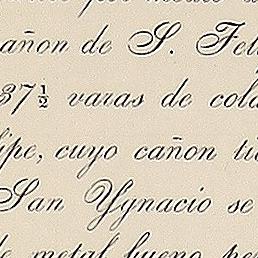 por medio
añon de S. Feli
37½ varas de cola
ipe, cuyo cañon ti
San Ygnacio se
de metal bueno, pe